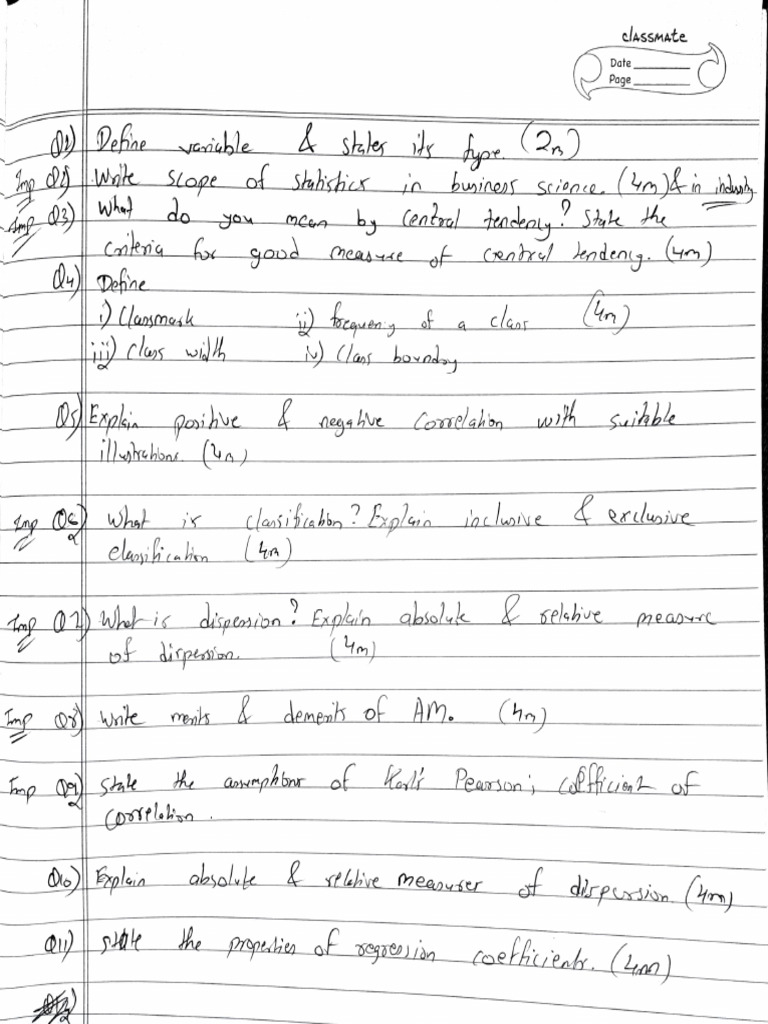 classmate
Date
Page
Q1) Define variable & states its type. (2m)
Imp Q2) Write scope of statistics in business science. (4m) & in industry
Imp Q3) What do you mean by central tendency? State the
criteria for good measure of central tendency. (4m)
Q4) Define
i) Classmark ii) frequency of a class (4m)
iii) class width iv) Class boundary
Q5) Explain positive & negative correlation with suitable
illustrations. (4m)
Imp Q6) What is classification? Explain inclusive & exclusive
classification (4m)
Imp Q7) What is dispersion? Explain absolute & relative measure
of dispersion. (4m)
Imp Q8) Write merits & demerits of AM. (4m)
Imp Q9) State the assumptions of Karl's Pearson; Coefficient of
correlation.
Q10) Explain absolute & relative measures of dispersion. (4m)
Q11) State the properties of regression coefficients. (4m)